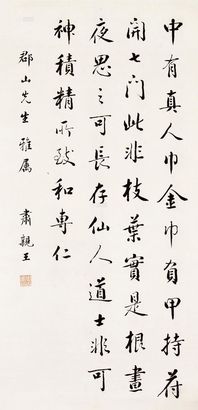 中有真人巾金巾負甲持符
開七門此非枝葉實是根晝
夜思之可長存仙人道士非可
神積精所致和專仁
郡山先生雅屬
肅親王